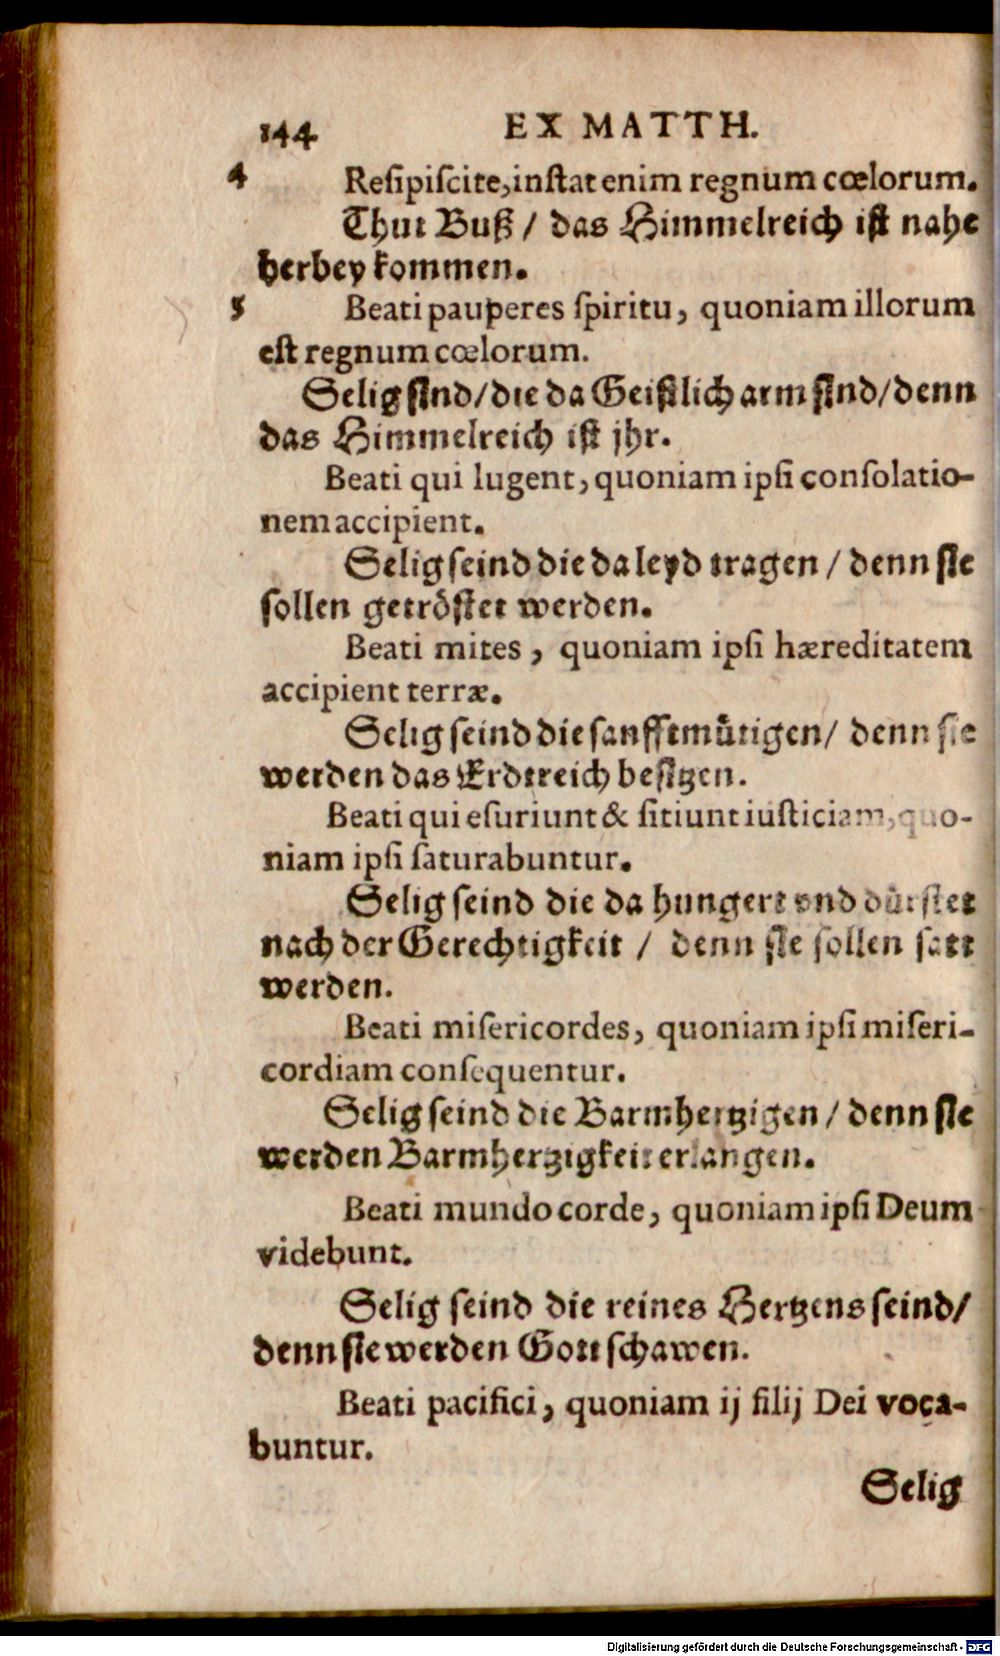 144 EX MATTH.
4 Reſipiſcite, inſtat enim regnum cœlorum.
Thut Buß / das Himmelreich iſt nahe
herbey kommen.
5 Beati pauperes ſpiritu, quoniam illorum
eſt regnum cœlorum.
Selig ſind / die da Geiſtlich arm ſind / denn
das Himmelreich iſt jhr.
Beati qui lugent, quoniam ipſi conſolatio-
nem accipient.
Selig ſeind die da leyd tragen / denn ſie
ſollen getröſtet werden.
Beati mites, quoniam ipſi hæreditatem
accipient terræ.
Selig ſeind die ſanfftmütigen / denn ſie
werden das Erdtreich beſitzen.
Beati qui eſuriunt & ſitiunt iuſticiam, quo-
niam ipſi ſaturabuntur.
Selig ſeind die da hungert vnd dürſtet
nach der Gerechtigkeit / denn ſie ſollen ſatt
werden.
Beati miſericordes, quoniam ipſi miſeri-
cordiam conſequentur.
Selig ſeind die Barmhertzigen / denn ſie
werden Barmhertzigkeit erlangen.
Beati mundo corde, quoniam ipſi Deum
videbunt.
Selig ſeind die reines Hertzens ſeind /
denn ſie werden Gott ſchawen.
Beati pacifici, quoniam ij filij Dei voca-
buntur.
Selig
Digitalisierung gefördert durch die Deutsche Forschungsgemeinschaft - DFG